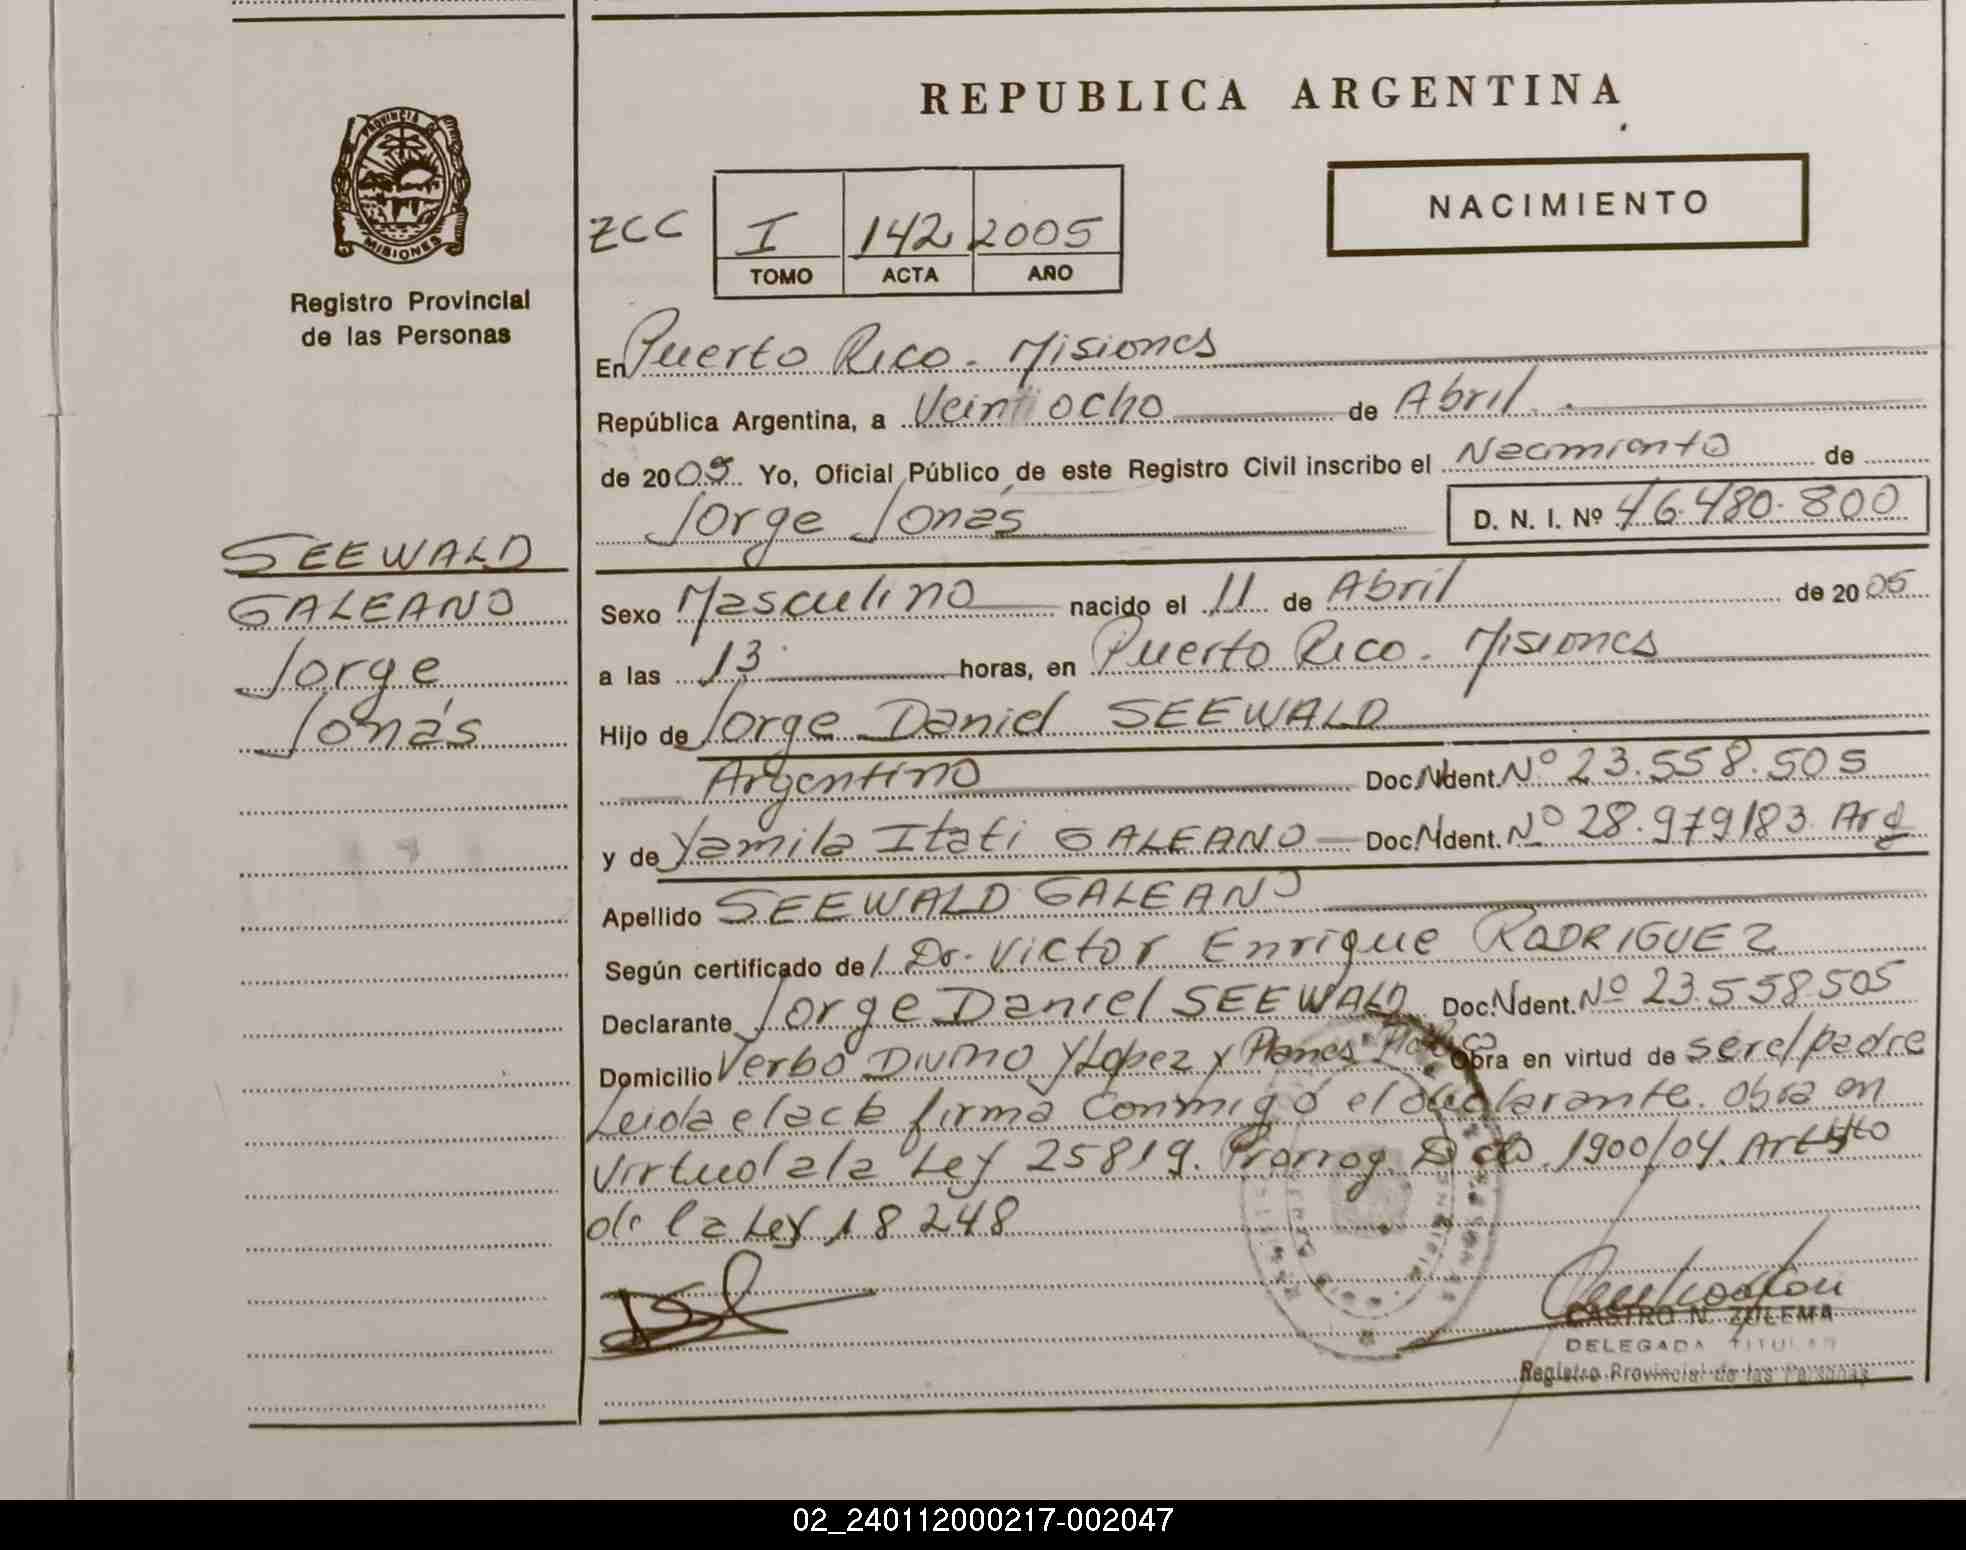 REPUBLICA ARGENTINA
PROVINCIA DE
MISIONES
Registro Provincial
de las Personas
ZCC
I 142 2005
TOMO ACTA AÑO
NACIMIENTO
En Puerto Rico. Misiones
República Argentina, a Veintiocho de Abril.
de 2005 Yo, Oficial Público de este Registro Civil inscribo el Nacimiento de
Jorge Jonás D. N. I. Nº 46.480.800
SEEWALD
GALEANO
Jorge
Jonás
Sexo Masculino nacido el 11 de Abril de 2005
a las 13 horas, en Puerto Rico. Misiones
Hijo de Jorge Daniel SEEWALD
Argentino Doc. Ident. Nº 23.558.505
y de Yamila Itati GALEANO Doc. Ident. Nº 28.979183 Arg
Apellido SEEWALD GALEANO
Según certificado de / Dr. Victor Enrique RODRIGUEZ
Declarante Jorge Daniel SEEWALD Doc. Ident. Nº 23.558505
Domicilio Verbo Divino y Lopez y Planes Obra en virtud de ser el padre
Leida el acta firma conmigo el declarante. Obra en
virtud a la Ley 25819. Prorrog. Dcto. 1900/04.
de la Ley 18248
CASTRO N. ZULEMA
DELEGADA TITULAR
Registro Provincial de las Personas
02_240112000217-002047